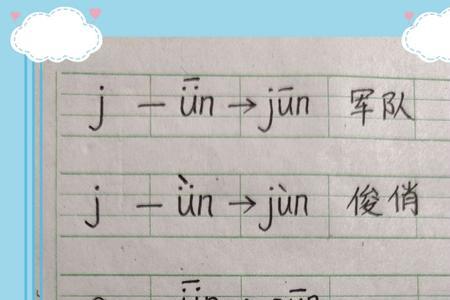 j — ǖn → jūn 军队
j — ǜn → jùn 俊俏